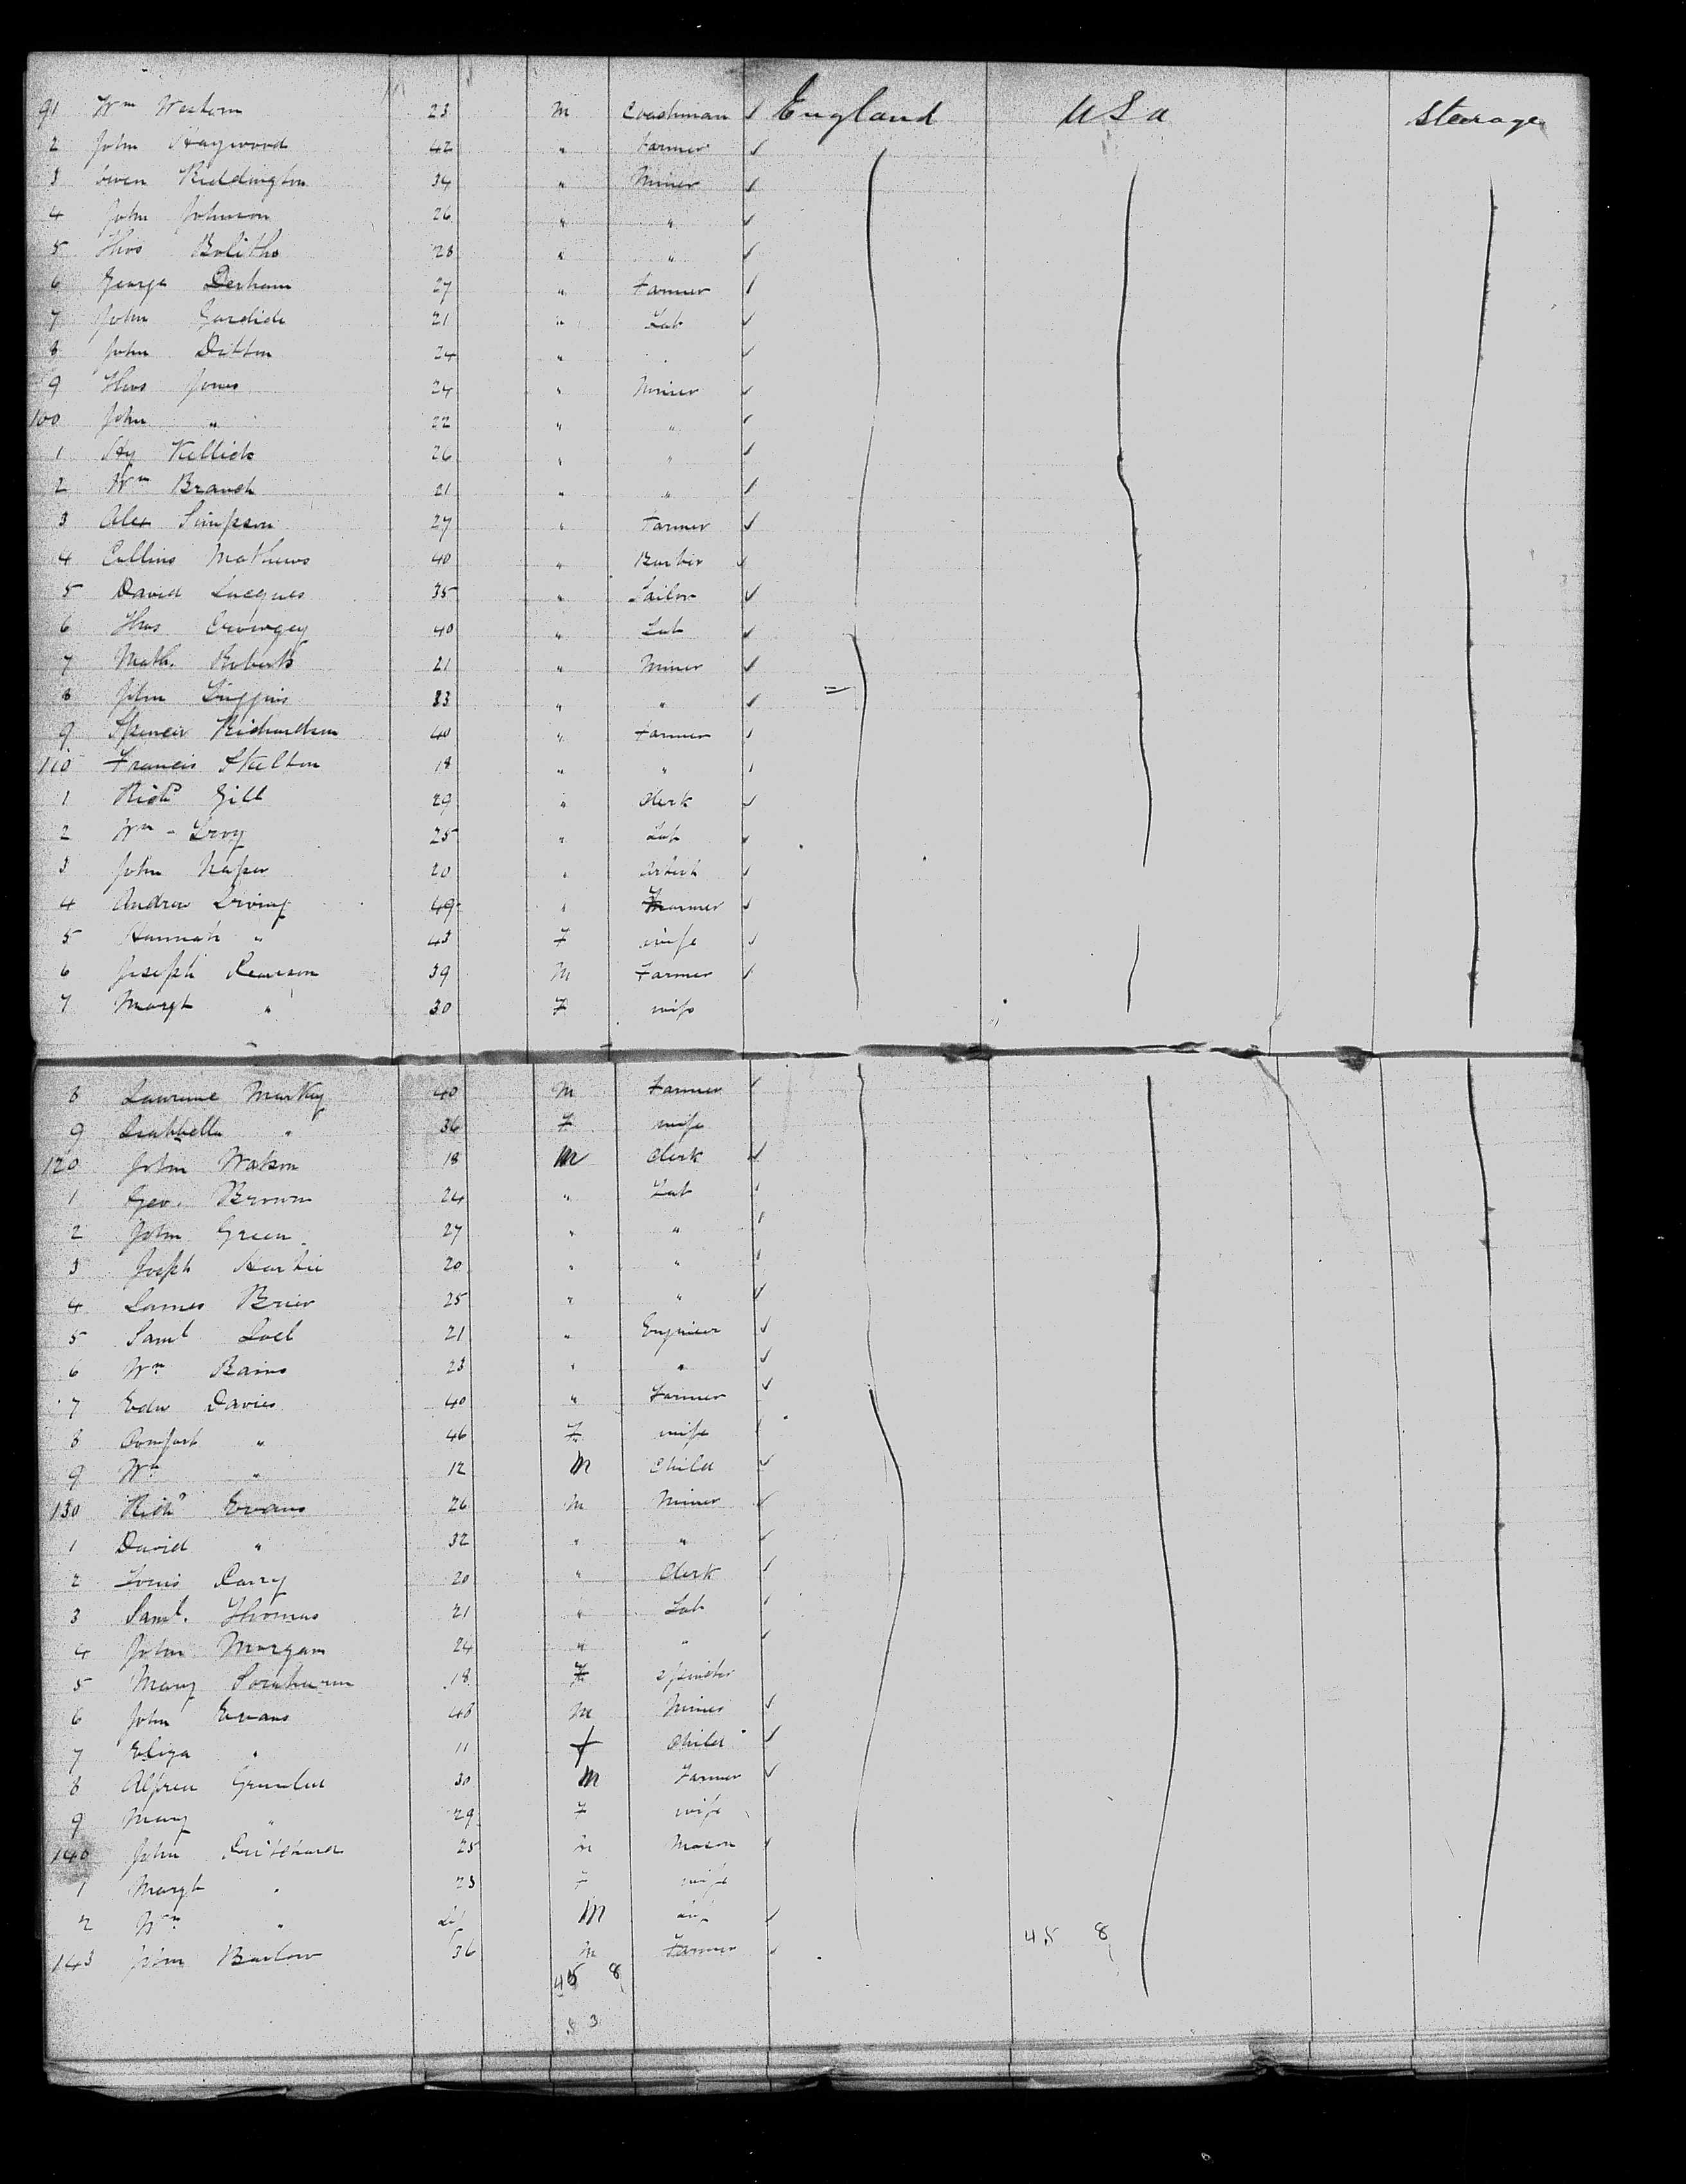 91 Wm Western 23 M Coachman ✓ England USA Steerage
2 John Haywood 42 " Farmer ✓
3 Owen Riddington 34 " Miner ✓
4 John Johnson 26 " " ✓
5 Thos Bolitho 28 " " ✓
6 George Derham 27 " Farmer ✓
7 John 21 " Lab ✓
8 John Ditton 24 " . ✓
9 Thos Jones 24 " Miner ✓
100 John " 22 " " ✓
1 Hy Kellick 26 " " ✓
2 Wm Branch 21 " " ✓
3 Alex Simpson 27 " Farmer ✓
4 Collins Mathews 40 " Barber ✓
5 David Lucques 35 " Sailor ✓
6 Thos Crowgey 40 " Lab ✓
7 Math. Roberts 21 " Miner ✓
8 John 33 " " ✓
9 Spencer Richardson 40 " Farmer ✓
110 Francis Skelton 18 " " ✓
1 Richd Gill 29 " Clerk ✓
2 Wm - 25 " Lab ✓
3 John Naper 20 " Artist ✓
4 Andrew Irving 49 " Farmer ✓
5 Hannah " 43 F wife ✓
6 Joseph Pearson 39 M Farmer ✓
7 Margt " 30 F wife
8 Lawrence Markey 40 M Farmer ✓
9 Isabbella " 36 F wife
120 John Watson 18 M Clerk ✓
1 Geo. Brown 24 " Lab ✓
2 John Green 27 " " ✓
3 Joseph 20 " " ✓
4 James Brier 25 " " ✓
5 Saml 21 " Engineer ✓
6 Wm Bains 23 " " ✓
7 Edw Davies 40 " Farmer ✓
8 Comfort " 46 F wife ✓
9 Wm " 12 M Child ✓
130 Richd Evans 26 M Miner ✓
1 David " 32 " " ✓
2 Louis Parry 20 " Clerk ✓
3 Saml. Thomas 21 " Lab ✓
4 John Morgan 24 " " ✓
5 Mary 18 F spinster
6 John Evans 48 M Miner ✓
7 Eliza " 11 f Child ✓
8 Alfred 30 M Farmer ✓
9 Mary " 29 F wife
140 John Pritchard 25 M Mason ✓
1 Margt " 23 F wife
2 Wm " M inf ✓
143 John Barlow 36 M Farmer ✓ 45 8
45 8
3